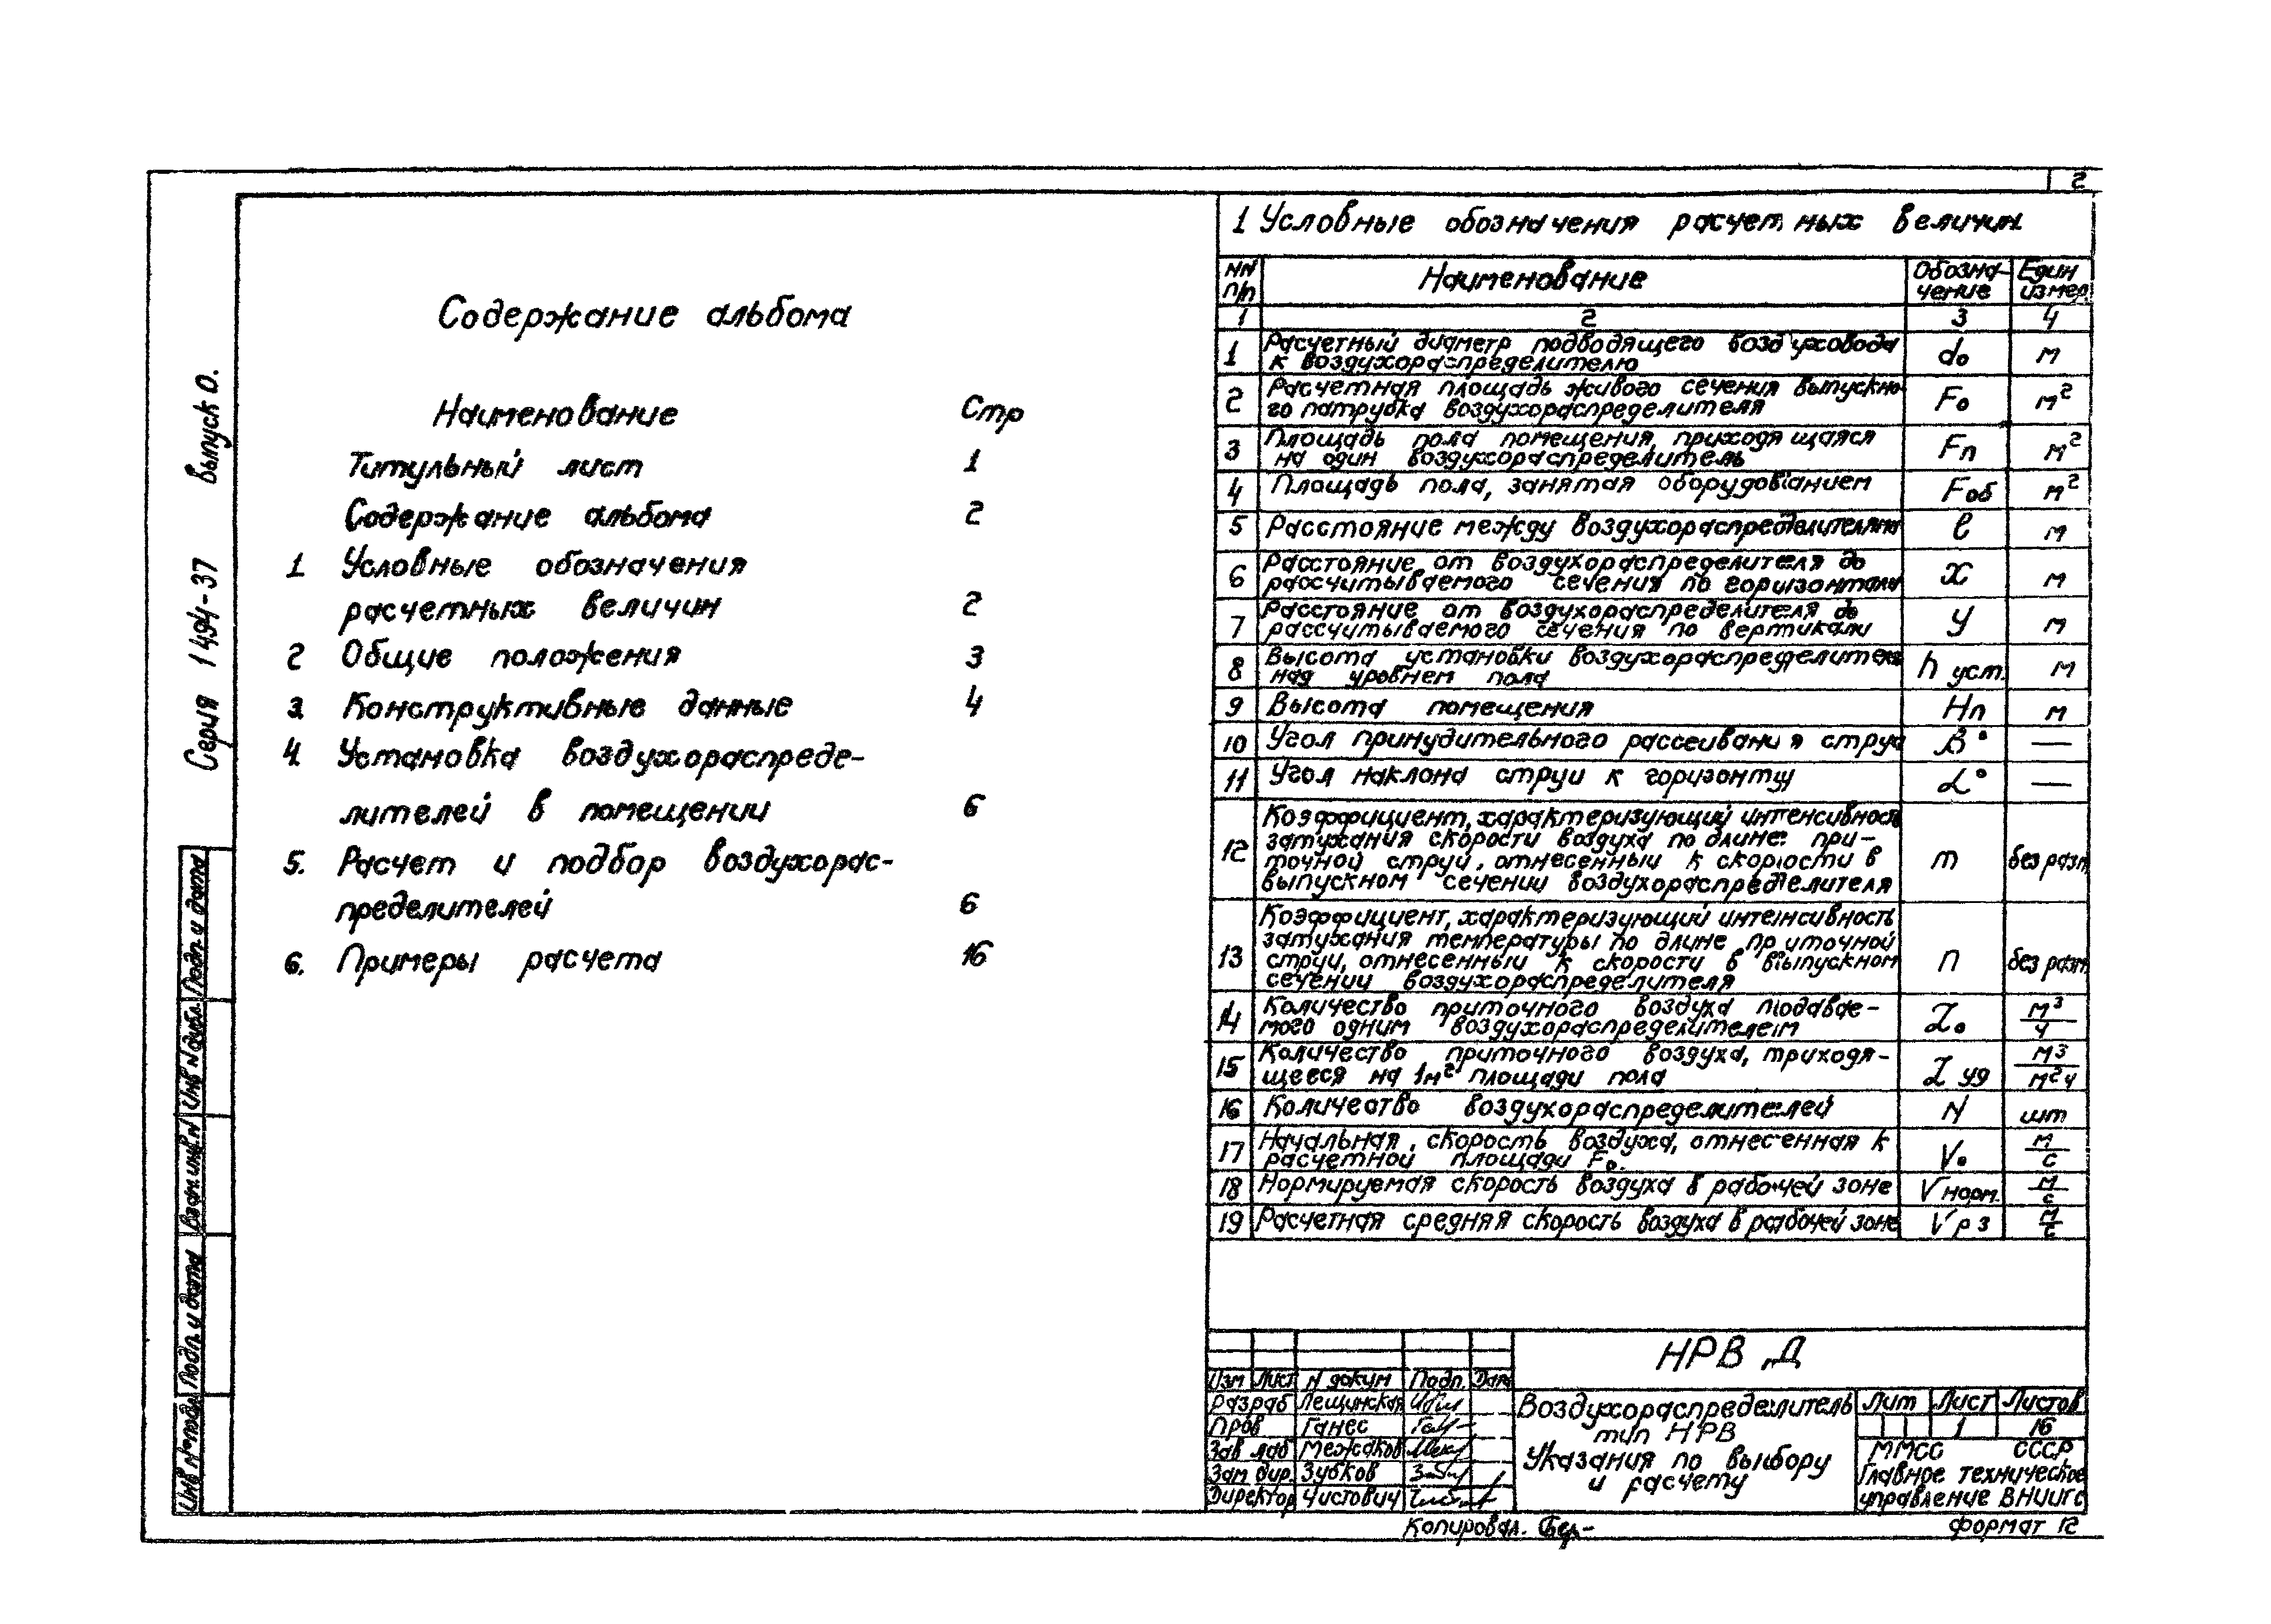 2
Серия 1.494-37 выпуск 0.
Содержание альбома
Наименование Стр
Титульный лист 1
Содержание альбома 2
1 Условные обозначения
расчетных величин 2
2 Общие положения 3
3. Конструктивные данные 4
4. Установка воздухораспреде-
лителей в помещении 6
5. Расчет и подбор воздухорас-
пределителей 6
6. Примеры расчета 16
1 Условные обозначения расчетных величин
NN п/п Наименование Обозна-чение Един измер.
1 2 3 4
1 Расчетный диаметр подводящего воздуховода
к воздухораспределителю d₀ м
2 Расчетная площадь живого сечения выпускно-
го патрубка воздухораспределителя F₀ м²
3 Площадь пола помещения, приходящаяся
на один воздухораспределитель Fп м²
4 Площадь пола, занятая оборудованием Fоб м²
5 Расстояние между воздухораспределителями l м
6 Расстояние от воздухораспределителя до
рассчитываемого сечения по горизонтали x м
7 Расстояние от воздухораспределителя до
рассчитываемого сечения по вертикали y м
8 Высота установки воздухораспределителя
над уровнем пола h уст. м
9 Высота помещения Hп м
10 Угол принудительного рассеивания струи β° —
11 Угол наклона струи к горизонту α° —
12 Коэффициент, характеризующий интенсивность
затухания скорости воздуха по длине при-
точной струи, отнесенный к скорости в
выпускном сечении воздухораспределителя m без разм
13 Коэффициент, характеризующий интенсивность
затухания температуры по длине приточной
струи, отнесенный к скорости в выпускном
сечении воздухораспределителя n без разм
14 Количество приточного воздуха подавае-
мого одним воздухораспределителем L₀ м³/ч
15 Количество приточного воздуха, приходя-
щееся на 1м² площади пола L уд м³/м²ч
16 Количество воздухораспределителей N шт
17 Начальная скорость воздуха, отнесенная к
расчетной площади F₀. V₀ м/с
18 Нормируемая скорость воздуха в рабочей зоне V норм. м/с
19 Расчетная средняя скорость воздуха в рабочей зоне V р з м/с
НРВ Д
Изм Лист N докум Подп. Дата
Разраб Лещинская
Пров Ганес
Зав лаб Межаков
Зам дир. Зубков
Директор Чистович
Воздухораспределитель
тип НРВ
Указания по выбору
и расчету
Лит Лист Листов
1 16
ММСС СССР
Главное техническое
управление ВНИИГС
Копировал. Формат 12
Инв N подл. Подп. и дата Взам. инв. N Инв N дубл. Подп. и дата